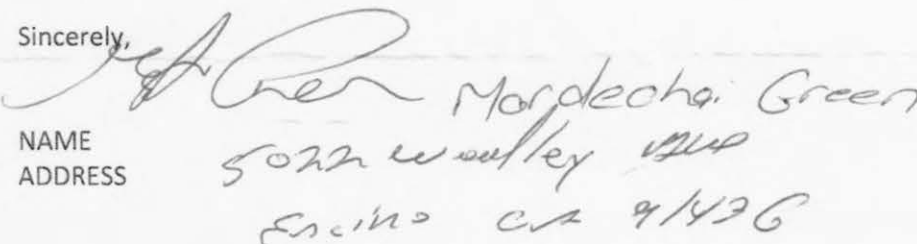 Sincerely,
Mordechai Green
NAME 5022 woodley
ADDRESS
Encino CA 91436